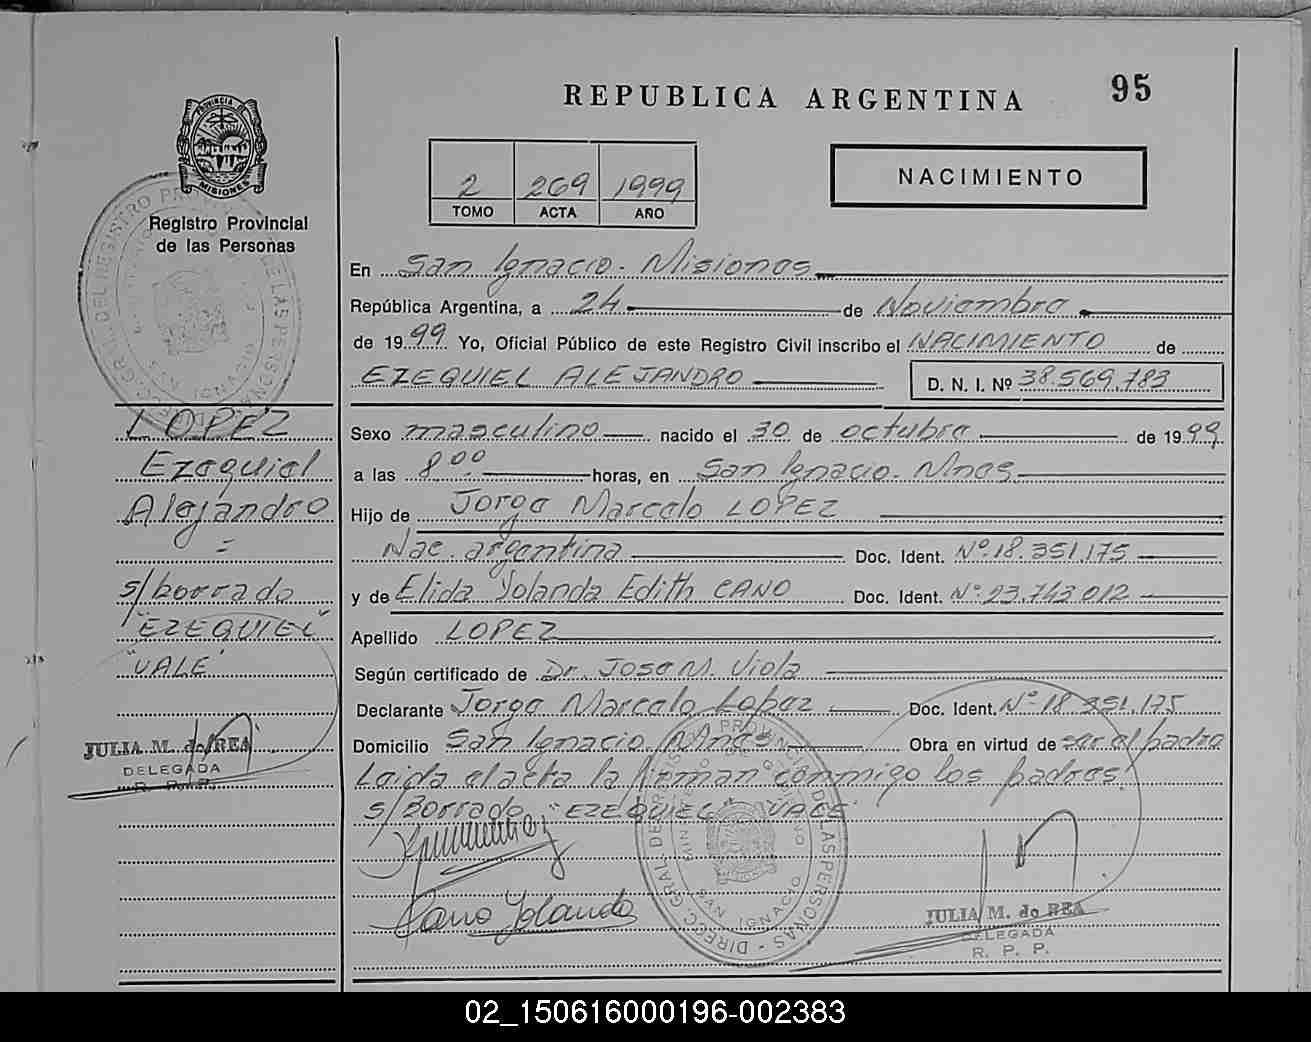 95
REPUBLICA ARGENTINA
PROVINCIA DE
MISIONES
2 269 1999
TOMO ACTA AÑO
NACIMIENTO
Registro Provincial
de las Personas
En San Ignacio - Misiones
República Argentina, a 24 de Noviembre
de 1999 Yo, Oficial Público de este Registro Civil inscribo el NACIMIENTO de
EZEQUIEL ALEJANDRO D. N. I. Nº 38.569.783
LOPEZ
Ezequiel
Alejandro
=
s/borrado
"EZEQUIEL"
"VALE"
JULIA M. de REA
DELEGADA
R. P. P.
Sexo masculino nacido el 30 de octubre de 1999
a las 8.00 horas, en San Ignacio - Mnes
Hijo de Jorge Marcelo LOPEZ
Nac. argentina Doc. Ident. Nº 18.351.175
y de Elida Yolanda Edith CANO Doc. Ident. Nº 23.743.012
Apellido LOPEZ
Según certificado de Dr. Jose M. Viola
Declarante Jorge Marcelo Lopez Doc. Ident. Nº 18 351.175
Domicilio San Ignacio Mnes Obra en virtud de ser el padre
Leida el acta la firman conmigo los padres
s/Borrado "EZEQUIEL" "VALE"
Cano Yolanda
DIREC. GRAL. DEL REGISTRO PROVINCIAL DE LAS PERSONAS
MINISTERIO DE GOBIERNO
SAN IGNACIO
JULIA M. de REA
DELEGADA
R. P. P.
02_150616000196-002383